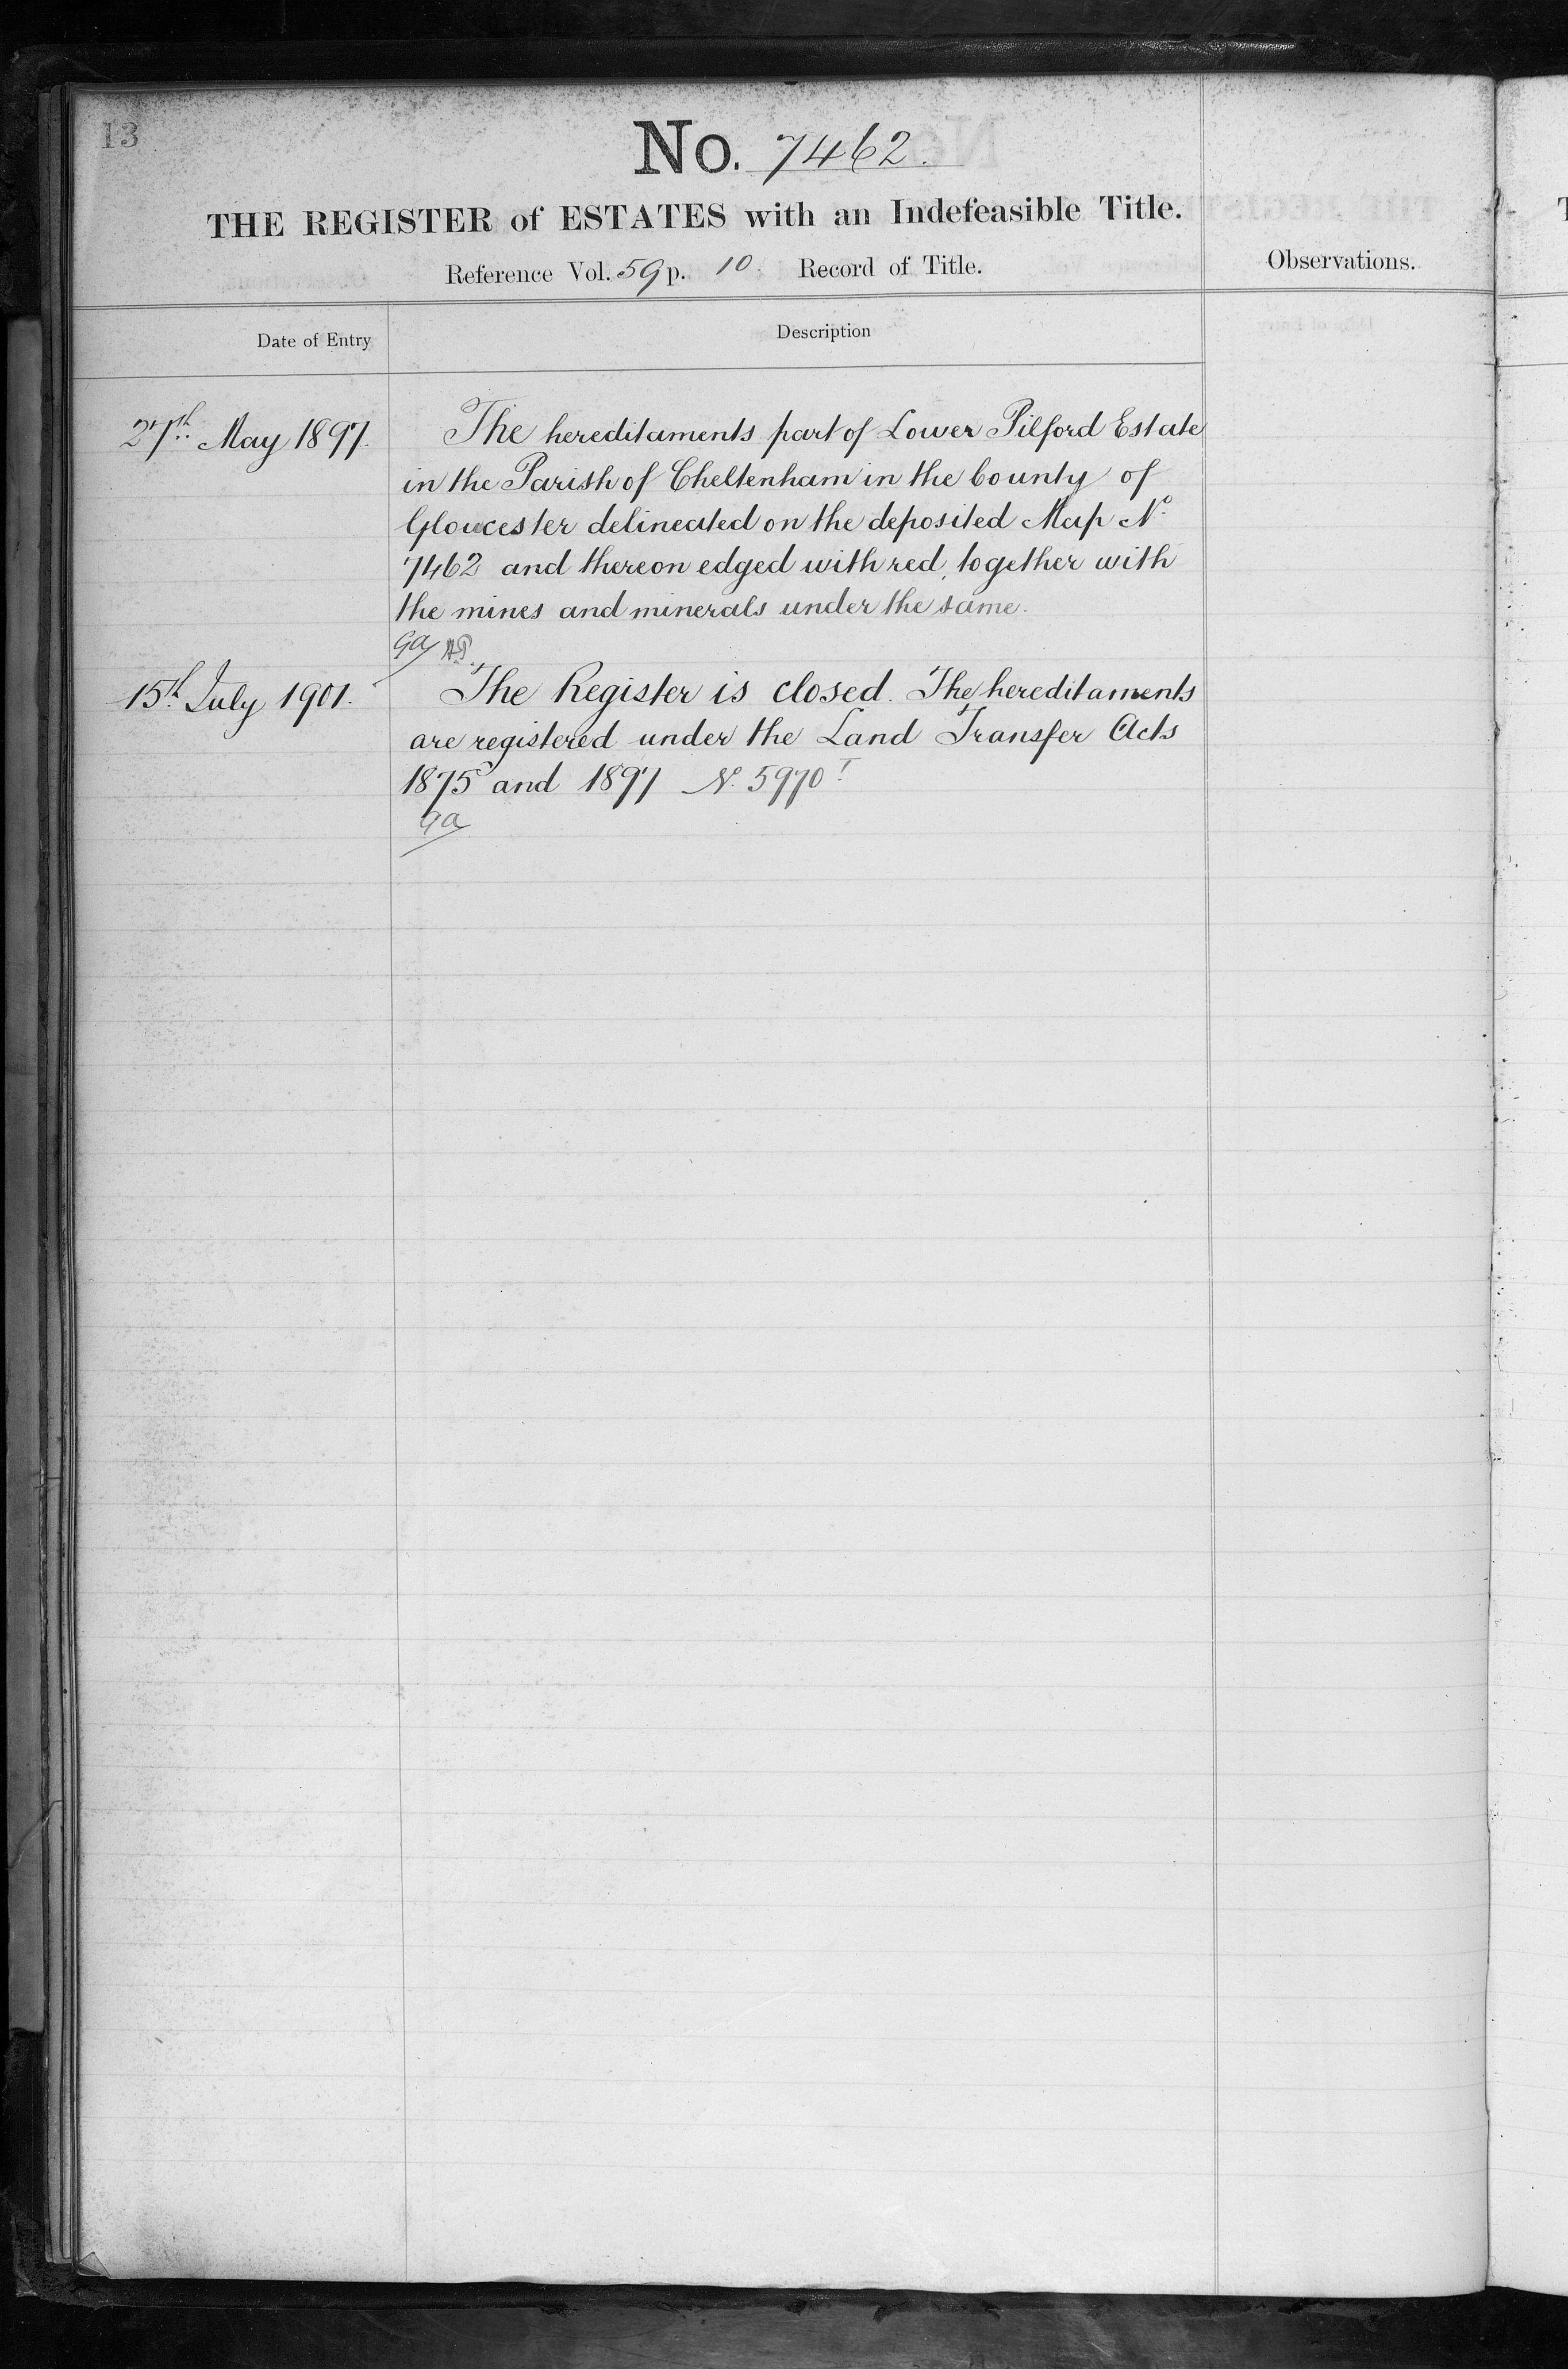 13
No. 7462.
THE REGISTER of ESTATES with an Indefeasible Title.
Reference Vol. 59 p. 10. Record of Title.
Observations.
Date of Entry
Description
27th May 1897.
The hereditaments part of Lower Pilford Estate
in the Parish of Cheltenham in the County of
Gloucester delineated on the deposited Map No.
7462 and thereon edged with red, together with
the mines and minerals under the same.
15th July 1901.
The Register is closed. The hereditaments
are registered under the Land Transfer Acts
1875 and 1897 No. 5970